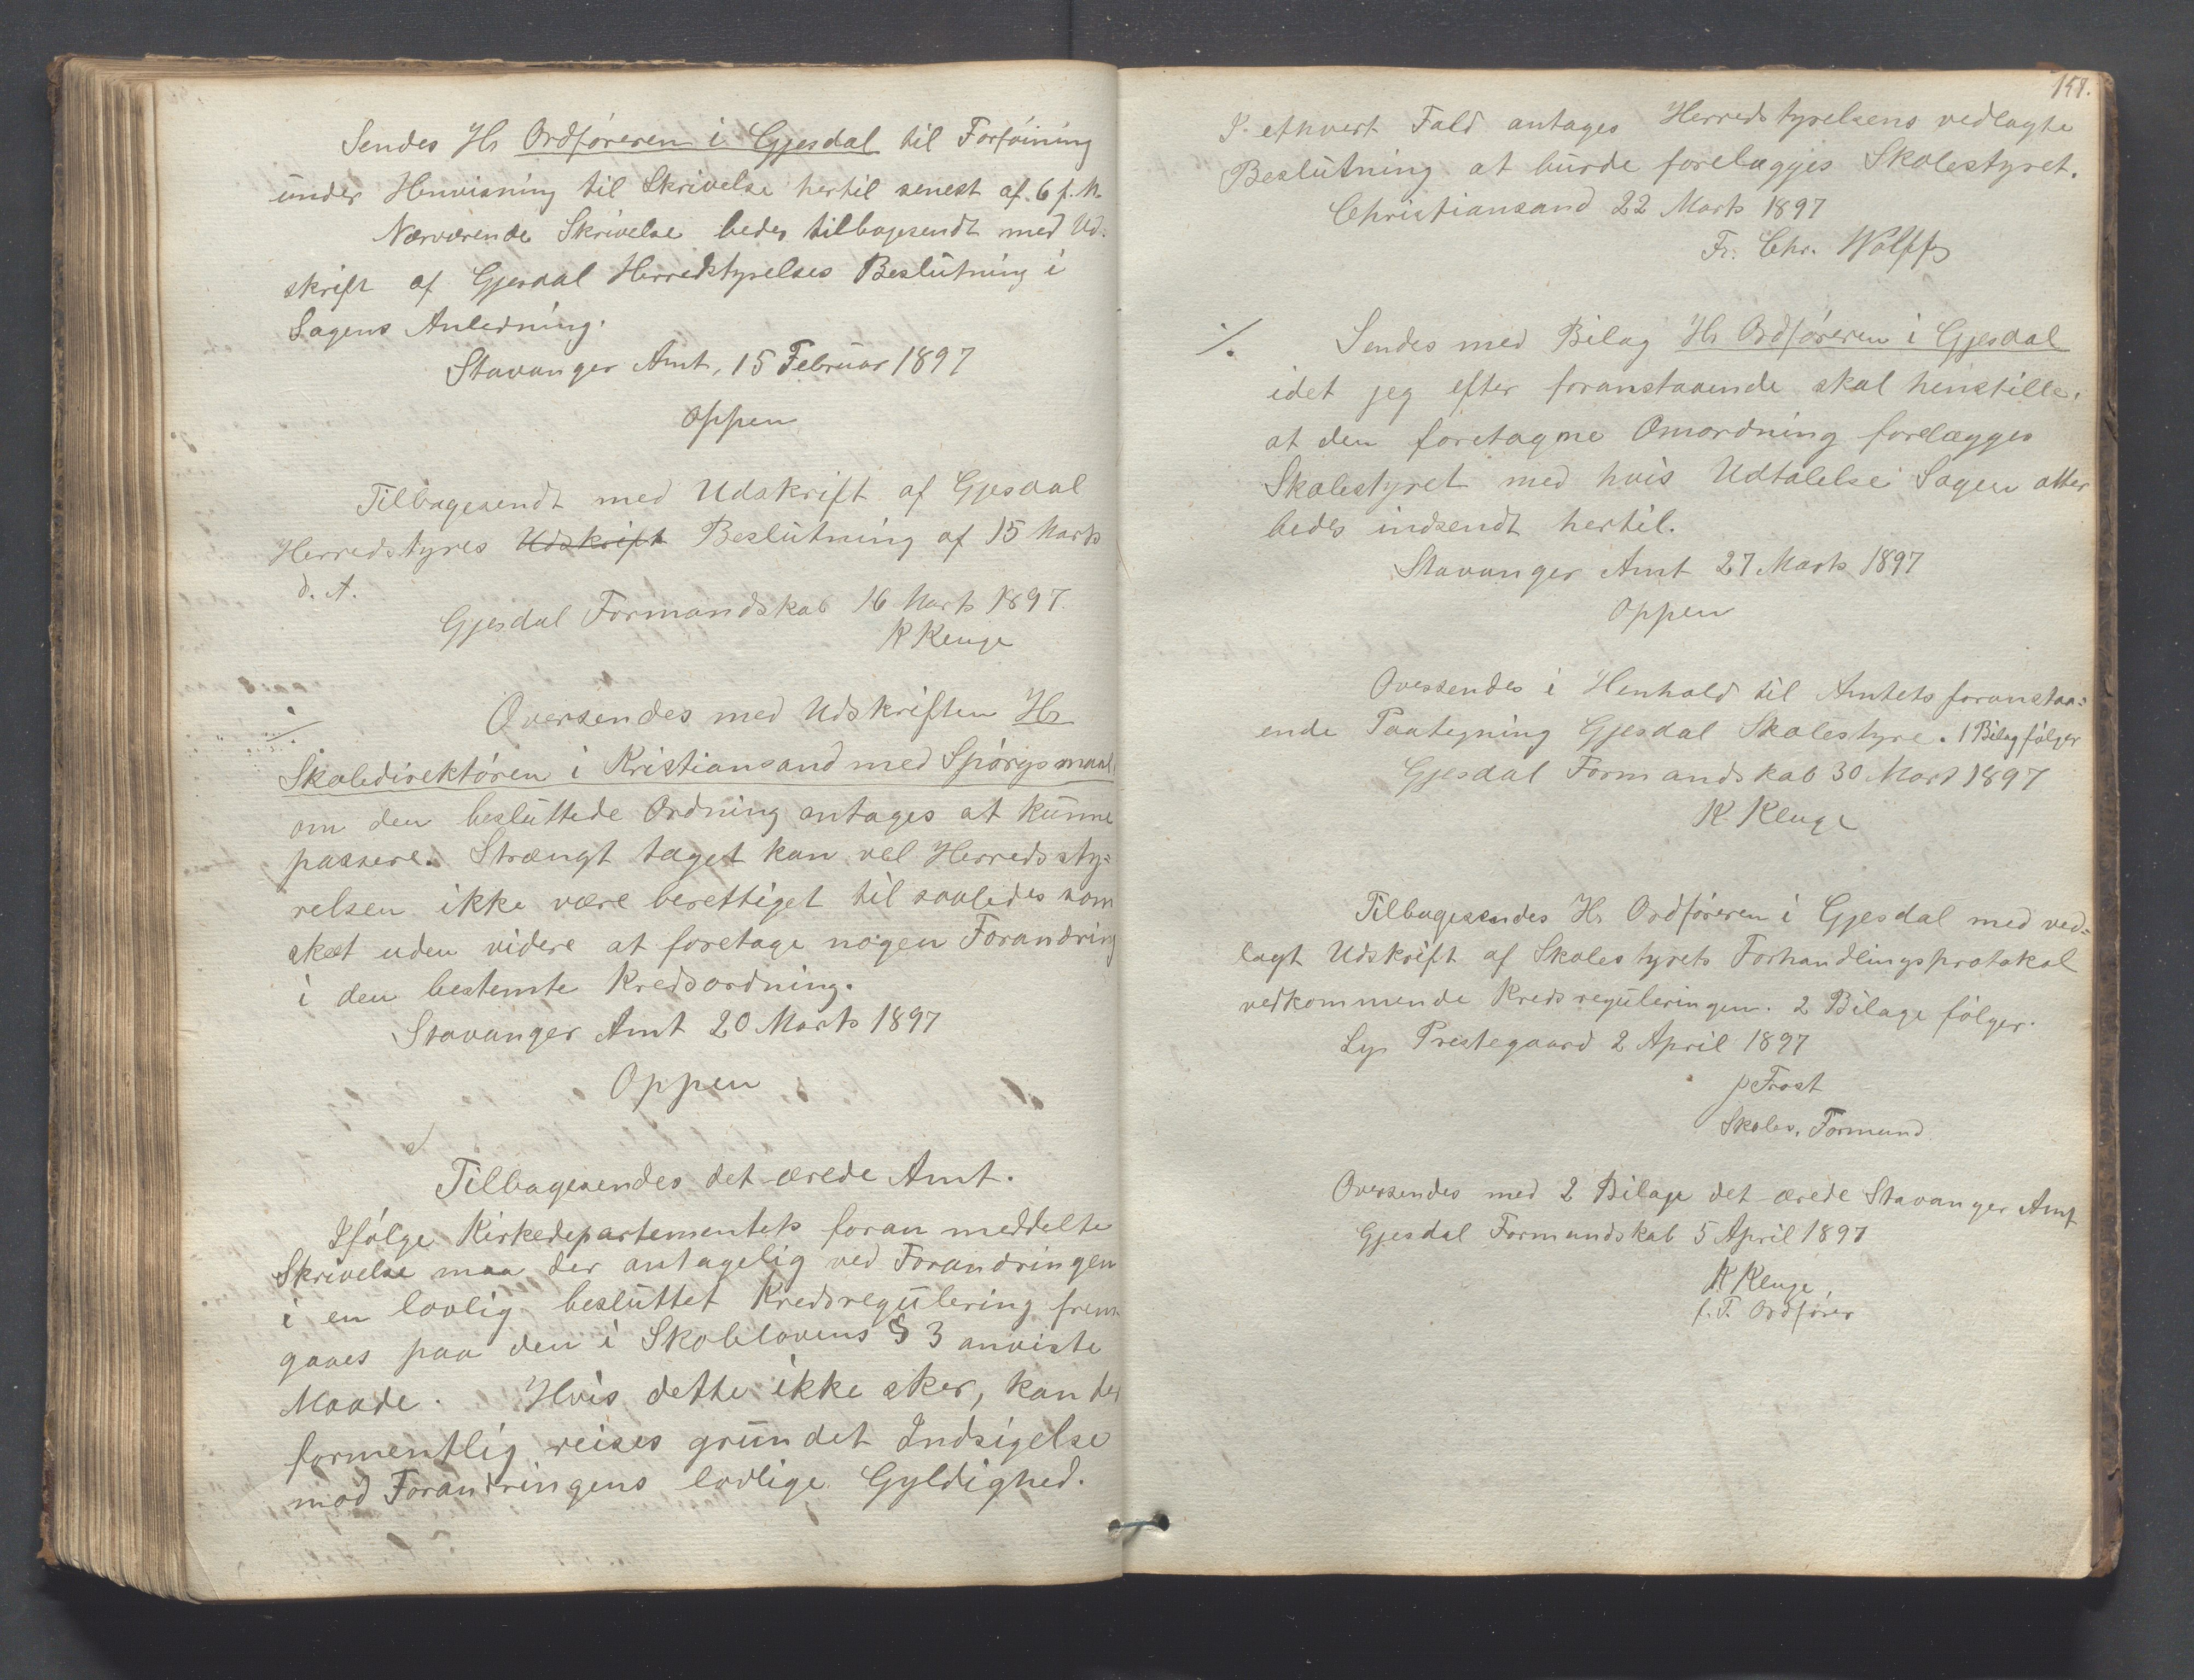 Sendes Hr Ordføreren i Gjesdal til Forføining
under Henvisning til Skrivelse hertil senest af 6 f. M.
Nærværende Skrivelse bedes tilbagesendt med Ud-
skrift af Gjesdal Herredstyrelses Beslutning i
Sagens Anledning.
Stavanger Amt, 15 Februar 1897
Oppen
Tilbagesendt med Udskrift af Gjesdal
Herredstyres Udskrift Beslutning af 15 Marts
d. A.
Gjesdal Formandskab 16 Marts 1897.
K Kluge
Oversendes med Udskriften Hr
Skoledirektøren i Kristiansand med Spørgsmaal
om den besluttede Ordning antages at kunne
passere. Strængt taget kan vel Herredssty=
relsen ikke være berettiget til saaledes som
skeet uden videre at foretage nogen Forandring
i den bestemte Kredsordning.
Stavanger Amt 20 Marts 1897
Oppen
Tilbagesendes det ærede Amt.
Ifølge Kirkedepartementets foran meddelte
Skrivelse maa der antagelig ved Forandringen
i en lovlig besluttet Kredsregulering frem-
gaaes paa den i Skolelovens § 3 anviste
Maade. Hvis dette ikke sker, kan der
formentlig reises grundet Indsigelse
mod Forandringens lovlige Gyldighed.
158.
I ethvert Fald antages Herredstyrelsens vedlagte
Beslutning at burde forelægges Skolestyret.
Christiansand 22 Marts 1897
Fr. Chr. Wolff
⁒ Sendes med Bilag Hr Ordføreren i Gjesdal
idet jeg efter foranstaaende skal henstille,
at den foretagne Omordning forelægges
Skolestyret med hvis Udtalelse Sagen atter
bedes indsendt hertil.
Stavanger Amt 27 Marts 1897
Oppen
Oversendes i Henhold til Amtets foranstaa=
ende Paategning Gjesdal Skolestyre. 1 Bilag følger
Gjesdal Formandskab 30 Mars 1897
K Kluge
Tilbagesendes Hr Ordføreren i Gjesdal med ved=
lagt Udskrift af Skolestyrets Forhandlingsprotokol
vedkommende Kredsreguleringen. 2 Bilage følger.
Lye Prestegaard 2 April 1897
P Frost
Skoles. Formand
Oversendes med 2 Bilage det ærede Stavanger Amt
Gjesdal Formandskab 5 April 1897
K Kluge
f. T. Ordfører